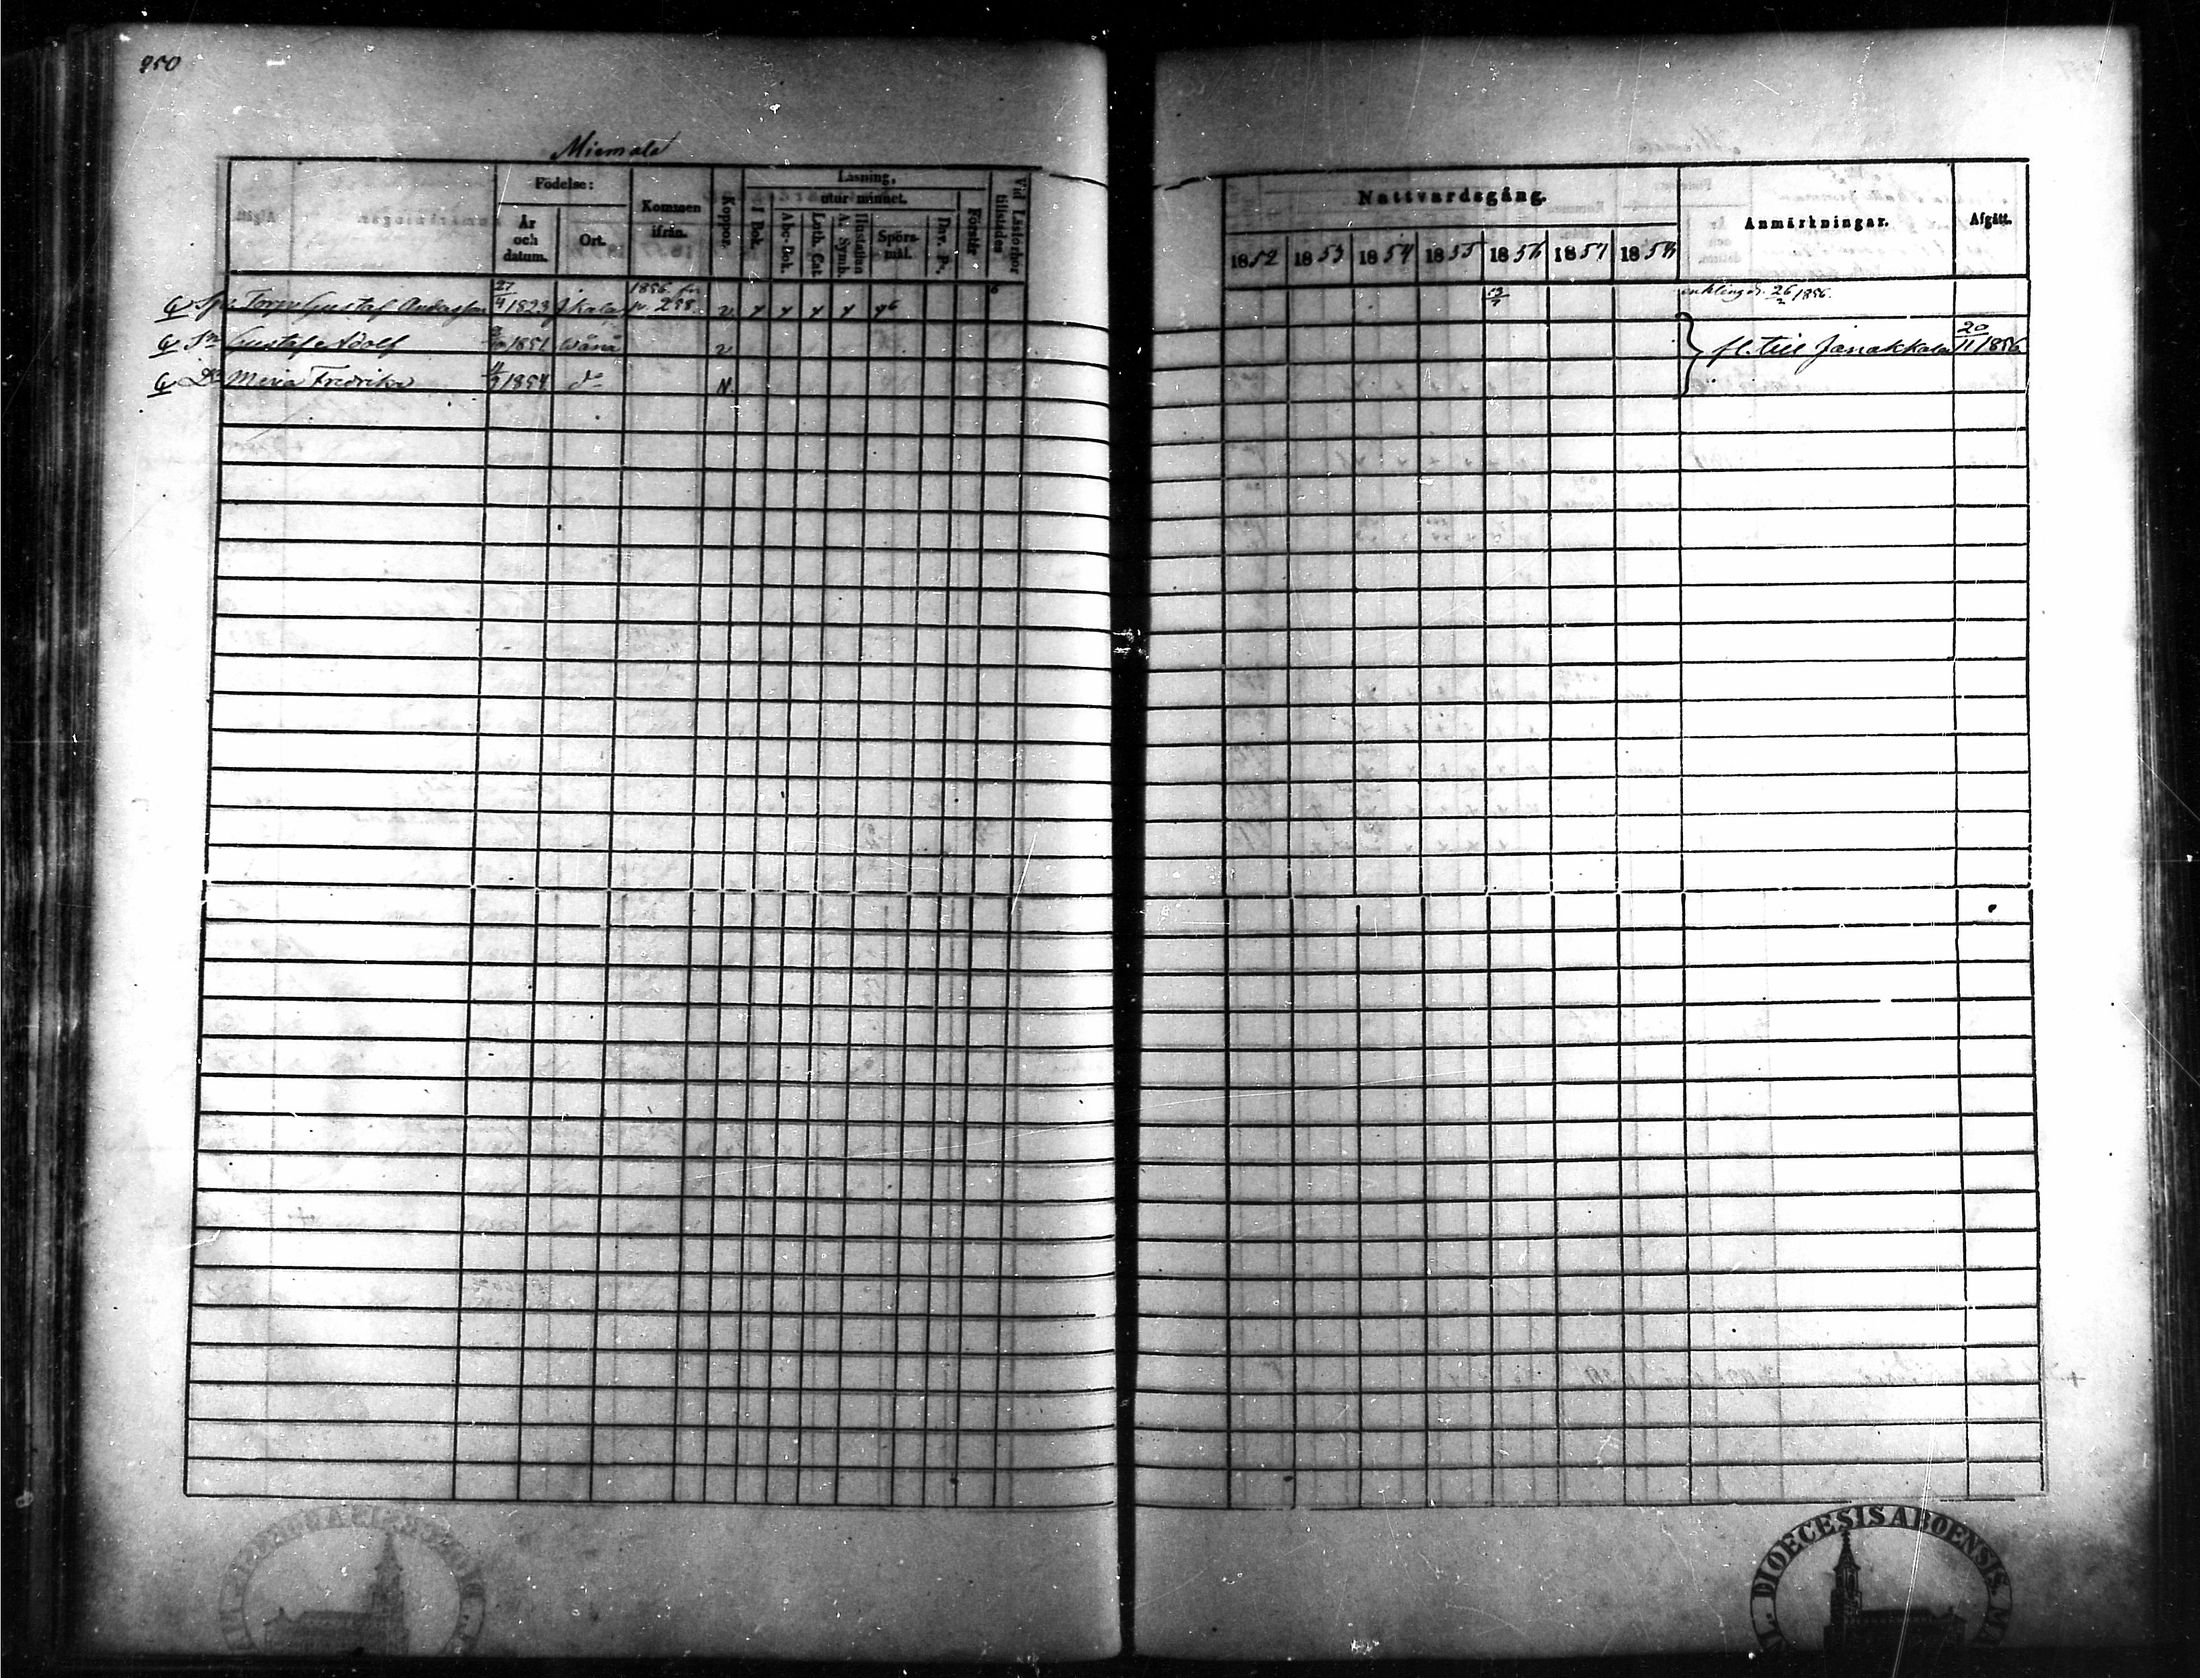 950
Miemala
Födelse:
År och datum.
Ort.
Kommen ifrån.
Koppor.
Läsning,
utur minnet.
I Bok.
Abc-Bok.
Luth. Cat.
A. Symb.
Hustaflan
Spörs-mål.
Dav. Ps.
Förstår
Vid Läsförhör tillstädes
Gustaf Andersson 27/4 1823 J:kala 1856 fr p. 258. v
Sn Gustaf Adolf 1851 Wånå v
Dr Maria Fredrika 1854 do N.
Nattvardsgång.
1852 1853 1854 1855 1856 1857 1858
Anmärkningar.
Afgått.
enkling d. 26/2 1856.
fl. till Janakkala 20/11 1856
DIOECESIS ABOENSIS